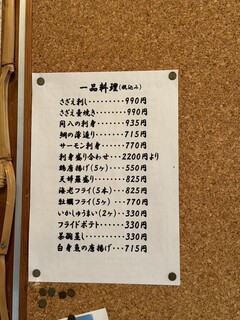 一品料理(税込み)
さざえ刺し・・・・・・・・・990円
さざえ壷焼き・・・・・・・990円
間八の刺身・・・・・・・・935円
鯛の薄造り・・・・・・・・715円
サーモン刺身・・・・・・・770円
刺身盛り合わせ・・・2200円より
鶏唐揚げ(5ヶ)・・・・550円
天婦羅盛り・・・・・・・・825円
海老フライ(5本)・・・825円
牡蠣フライ(5ヶ)・・・770円
いかしゅうまい(2ヶ)・・330円
フライドポテト・・・・・・330円
茶碗蒸し・・・・・・・・・330円
白身魚の唐揚げ・・・・・715円